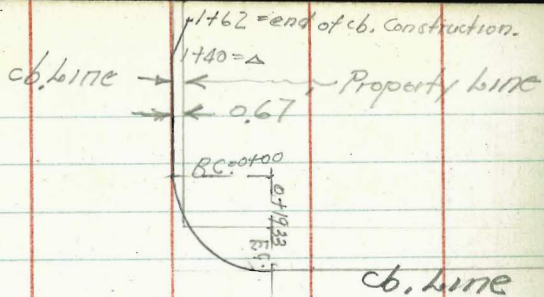 1+62 = end of cb. Construction.
1+40 = Δ
cb. Line
Property Line
0.67
B.C. 0+00
0+19.33
E.C.
cb. Line